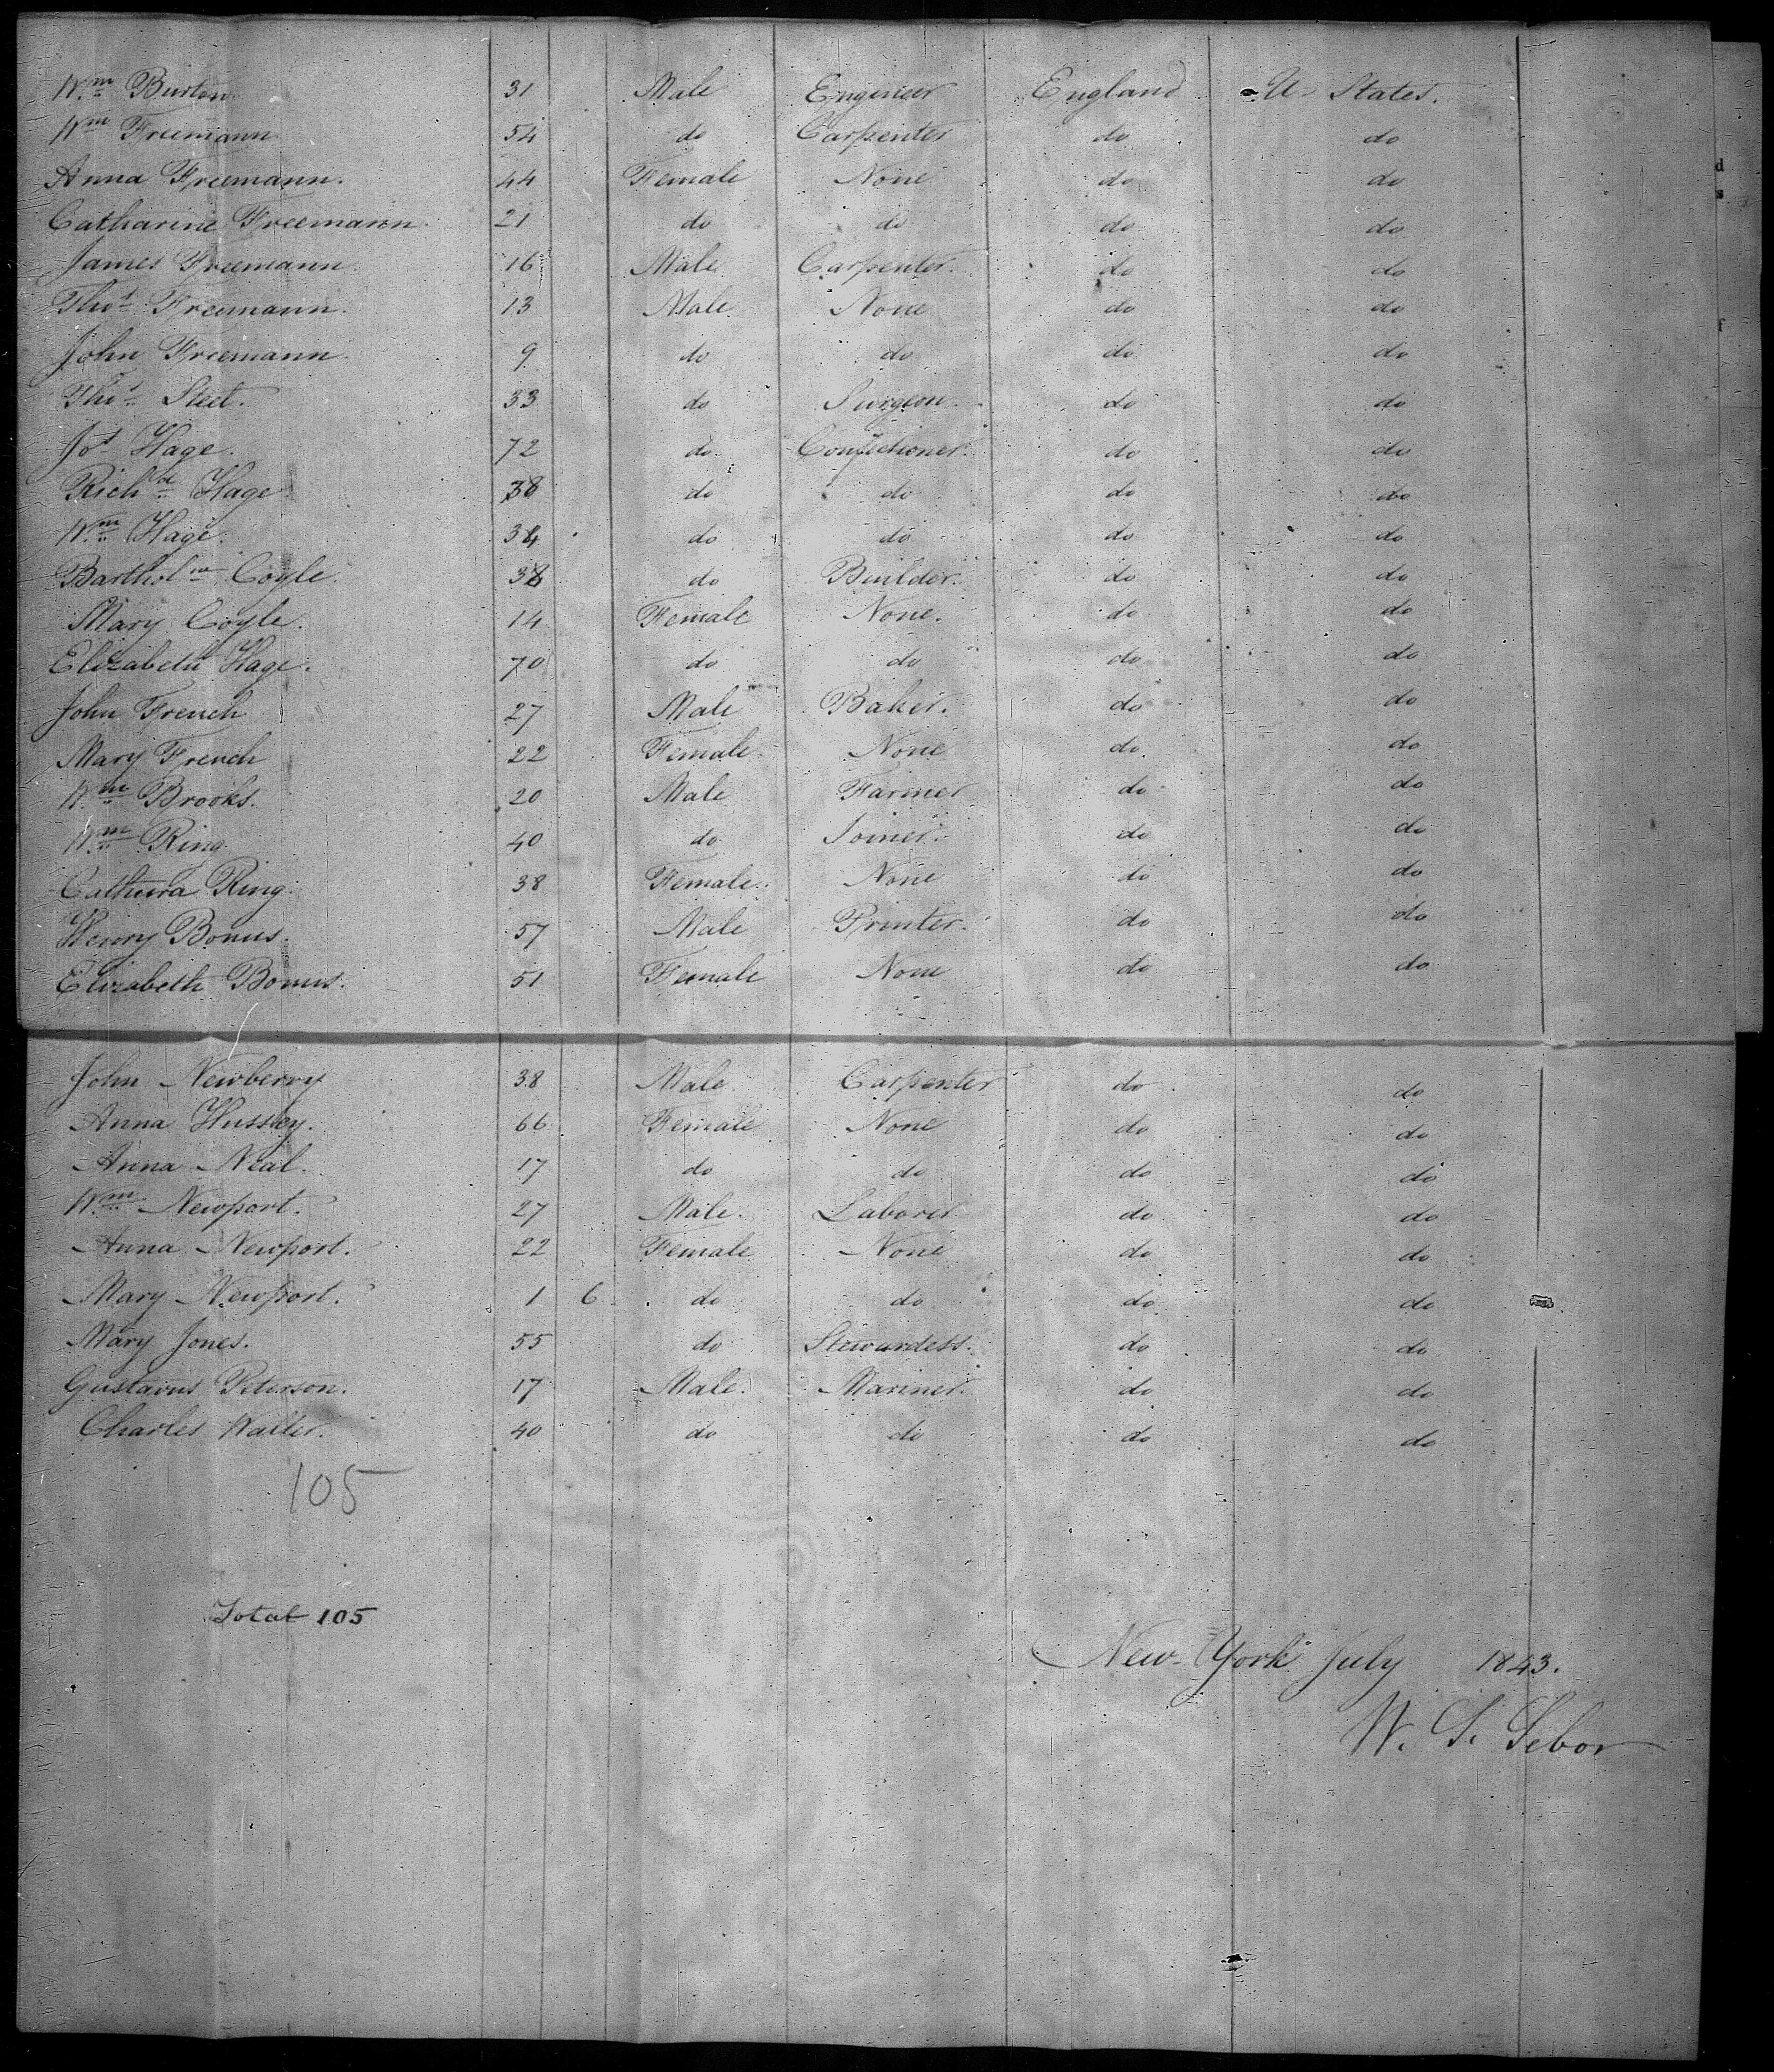 Wm Burton 31 Male Engineer England U. States.
Wm Freemann 54 do Carpenter do do
Anna Freemann. 44 Female None do do
Catharine Freemann. 21 do do do do
James Freemann. 16 Male Carpenter. do do
Thos Freemann. 13 Male None do do
John Freemann. 9 do do do do
Thos Steet. 33 do Surgeon. do do
Jos Hage. 72 do Confectioner. do do
Richd Hage 38 do do do do
Wm Hage. 34 do do do do
Bartholw Coyle. 38 do Builder. do do
Mary Coyle. 14 Female None. do do
Elizabeth Hage. 70 do do do do
John French 27 Male Baker. do do
Mary French 22 Female None do do
Wm Brooks. 20 Male Farmer do do
Wm Ring 40 do Joiner. do do
Ring. 38 Female. None do do
Henry Bonus. 57 Male Printer. do do
Elizabeth Bonus. 51 Female None do do
John Newberry 38 Male. Carpenter do do
Anna Hussey. 66 Female None do do
Anna Neal. 17 do do do do
Wm Newport. 27 Male. Laborer do do
Anna Newport. 22 Female None do do
Mary Newport. 1 6 do do do do
Mary Jones. 55 do Stewardess. do do
Gustavus Peterson. 17 Male. Mariner. do do
Charles Walter. 40 do do do do
105
Total 105
New-York July 1843.
W. S. Sebor
d
s
f